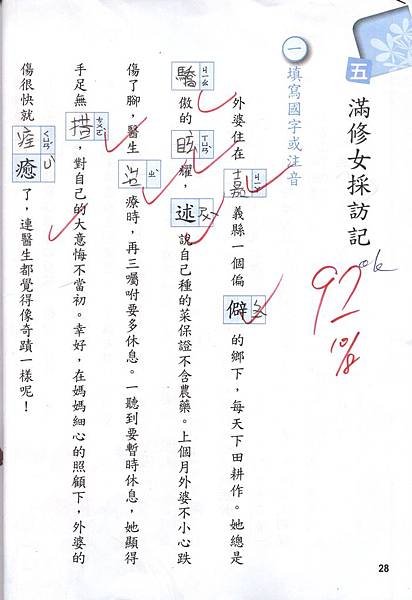 五 滿修女採訪記
一 填寫國字或注音
外婆住在嘉ㄐㄧㄚ義縣一個偏僻ㄆㄧˋ的鄉下,每天下田耕作。她總是
驕ㄐㄧㄠ傲的眩ㄒㄩㄢˋ耀,述ㄕㄨˋ說自己種的菜保證不含農藥。上個月外婆不小心跌
傷了腳,醫生治ㄓˋ療時,再三囑咐要多休息。一聽到要暫時休息,她顯得
手足無措ㄘㄨㄛˋ,對自己的大意悔不當初。幸好,在媽媽細心的照顧下,外婆的
傷很快就痊ㄑㄩㄢˊ癒ㄩˋ了,連醫生都覺得像奇蹟一樣呢!
97
ok
28